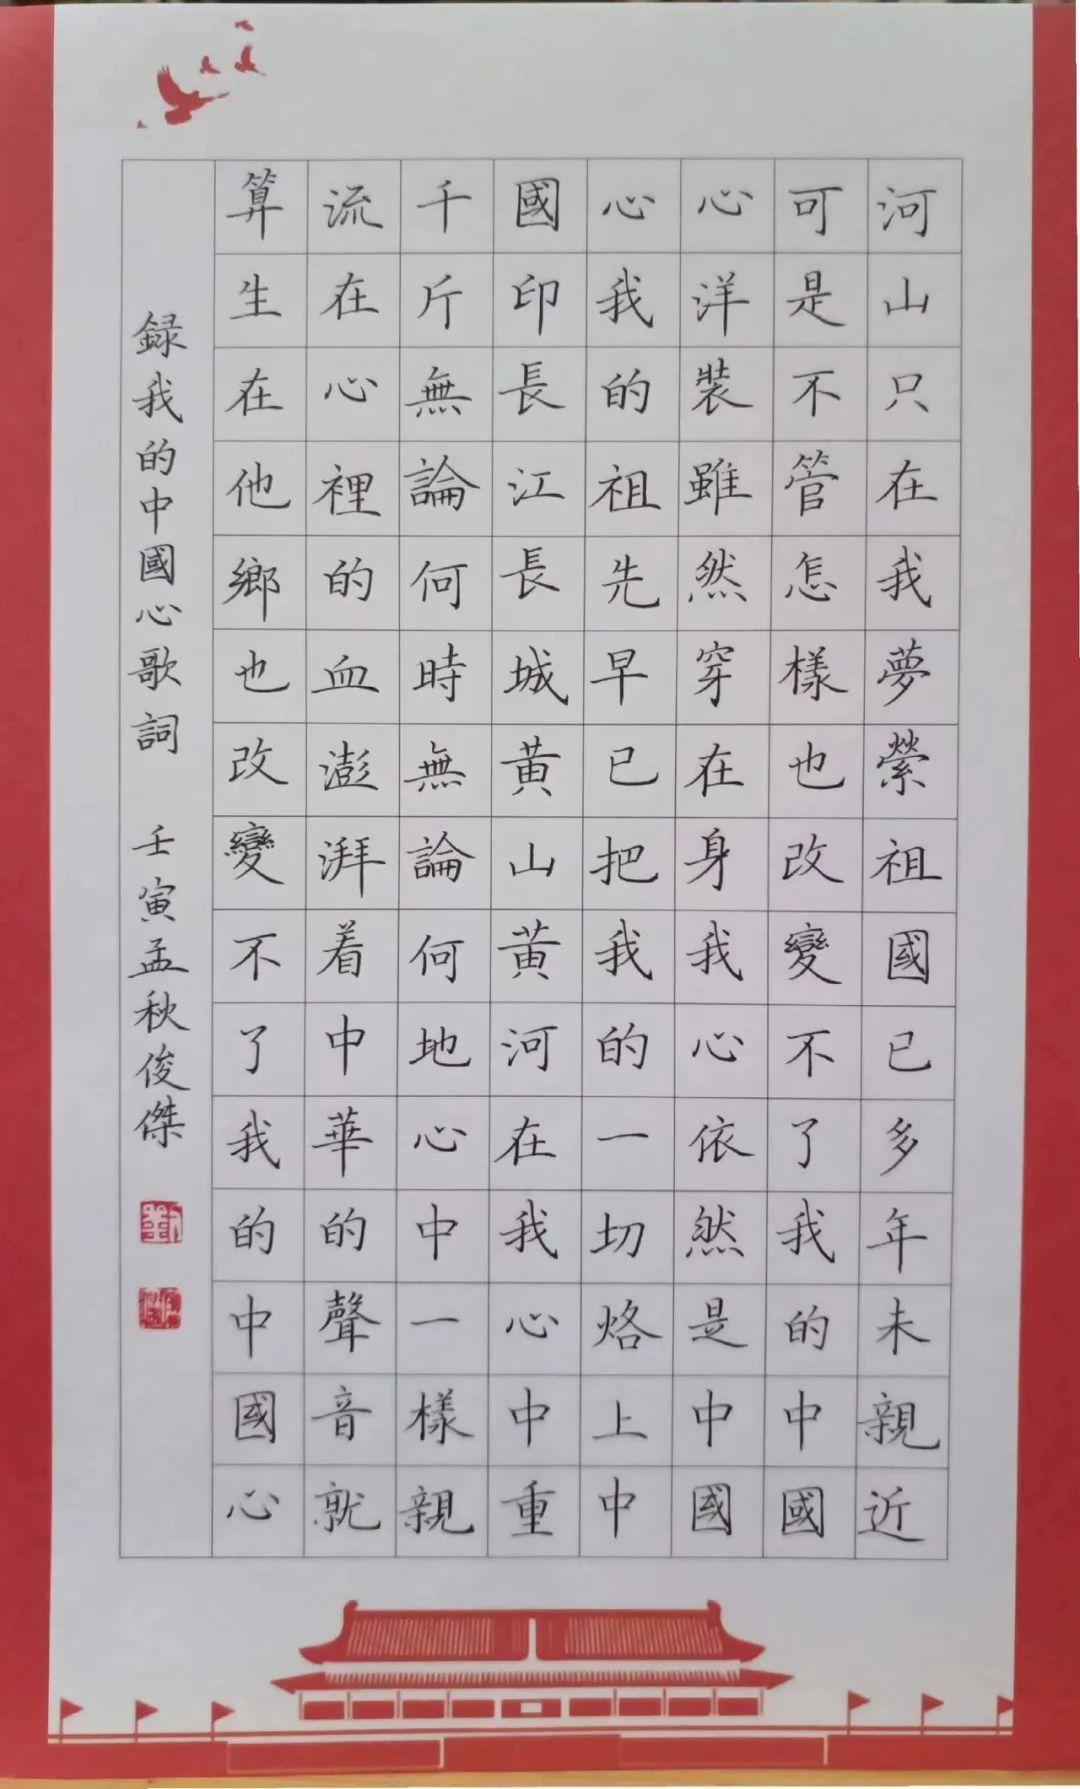 河山只在我夢縈祖國已多年未親近
可是不管怎樣也改變不了我的中國
心洋裝雖然穿在身我心依然是中國
心我的祖先早已把我的一切烙上中
國印長江長城黄山黄河在我心中重
千斤無論何時無論何地心中一樣親
流在心裡的血澎湃着中華的聲音就
算生在他鄉也改變不了我的中國心
録我的中國心歌詞 壬寅孟秋俊傑